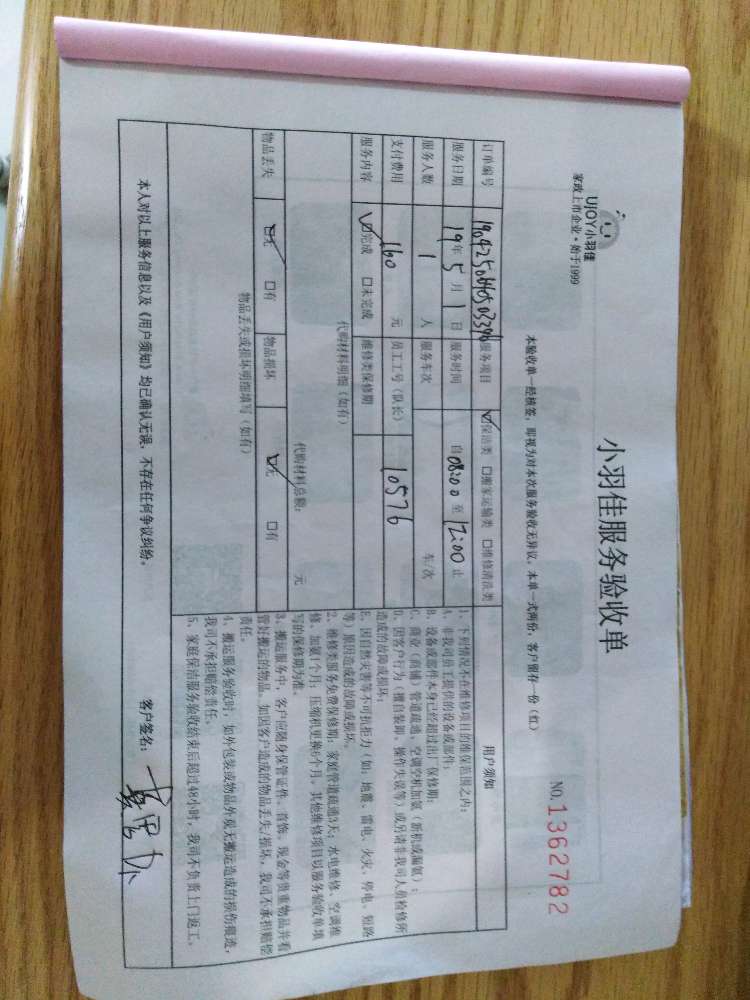 UJOY小羽佳
家政上市企业·始于1999
小羽佳服务验收单
NO.1362782
本验收单一经核签，即视为对本次服务验收无异议。本单一式两份，客户留存一份（红）
订单编号 服务项目 ☑保洁类 □搬家运输类 □维修清洗类
服务日期 19年5月1日 服务时间 自08:00至12:00止
服务人数 1人 服务车次 车/次
支付费用 160元 员工工号（队长） 10576
服务内容 ☑完成 □未完成 维修类保修期
代购材料明细（如有）
代购材料总额： 元
物品丢失 ☑无 □有 物品损坏 ☑无 □有
物品丢失或损坏明细填写（如有）
用户须知
1、下列情况不在维修项目的维保范围之内：
A、非我司员工提供的设备或部件；
B、设备或部件本身已经超过出厂保修期；
C、商章（商铺）管道疏通、空调空机加氨（新机或漏氨）；
D、因客户行为（擅自装卸、操作失误等）或另请非我司人员检修所
造成的故障或损坏；
E、因自然灾害等不可抗拒力（如：地震、雷电、火灾、停电、短路
等）原因造成的故障或损坏。
2、维修类服务免费保修期：家庭管道疏通3天；水电维修、空调维
修、加氨1个月；压缩机更换6个月，其他维修项目以服务验收单填
写的保修期为准。
3、搬运服务中，客户应随身保管证件、首饰、现金等贵重物品并看
管好搬运的物品，如因客户造成的物品丢失/损坏，我司不承担赔偿
责任。
4、搬运服务验收时，如外包装或物品外观无搬运造成的损伤痕迹，
我司不承担赔偿责任。
5、家庭保洁服务验收结束后超过48小时，我司不负责上门返工。
本人对以上服务信息以及《用户须知》均已确认无误，不存在任何争议纠纷。 客户签名：